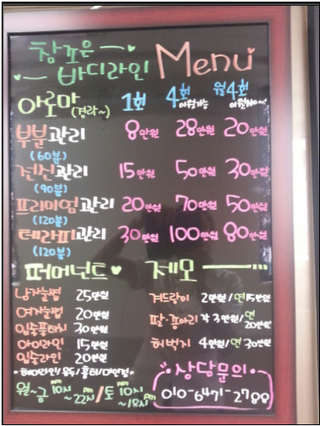 참고운
바디라인 Menu
아로마(경락~) 1회 4회 월4회
부분관리 8만원 28만원 20만원
(60분)
전신관리 15만원 50만원 30만원
(90분)
프리미엄관리 20만원 70만원 50만원
(120분)
테라피관리 30만원 100만원 80만원
(120분)
퍼머넌트 제모
남자눈썹 25만원 겨드랑이 2만원/연15만원
여자눈썹 20만원 팔·종아리 각 3만원/연20만원
입술풀터치 30만원
아이라인 15만원 허벅지 4만원/연30만원
입술라인 20만원
상담문의
월~금 10시~22시/토 10시~18시
010-6471-2788